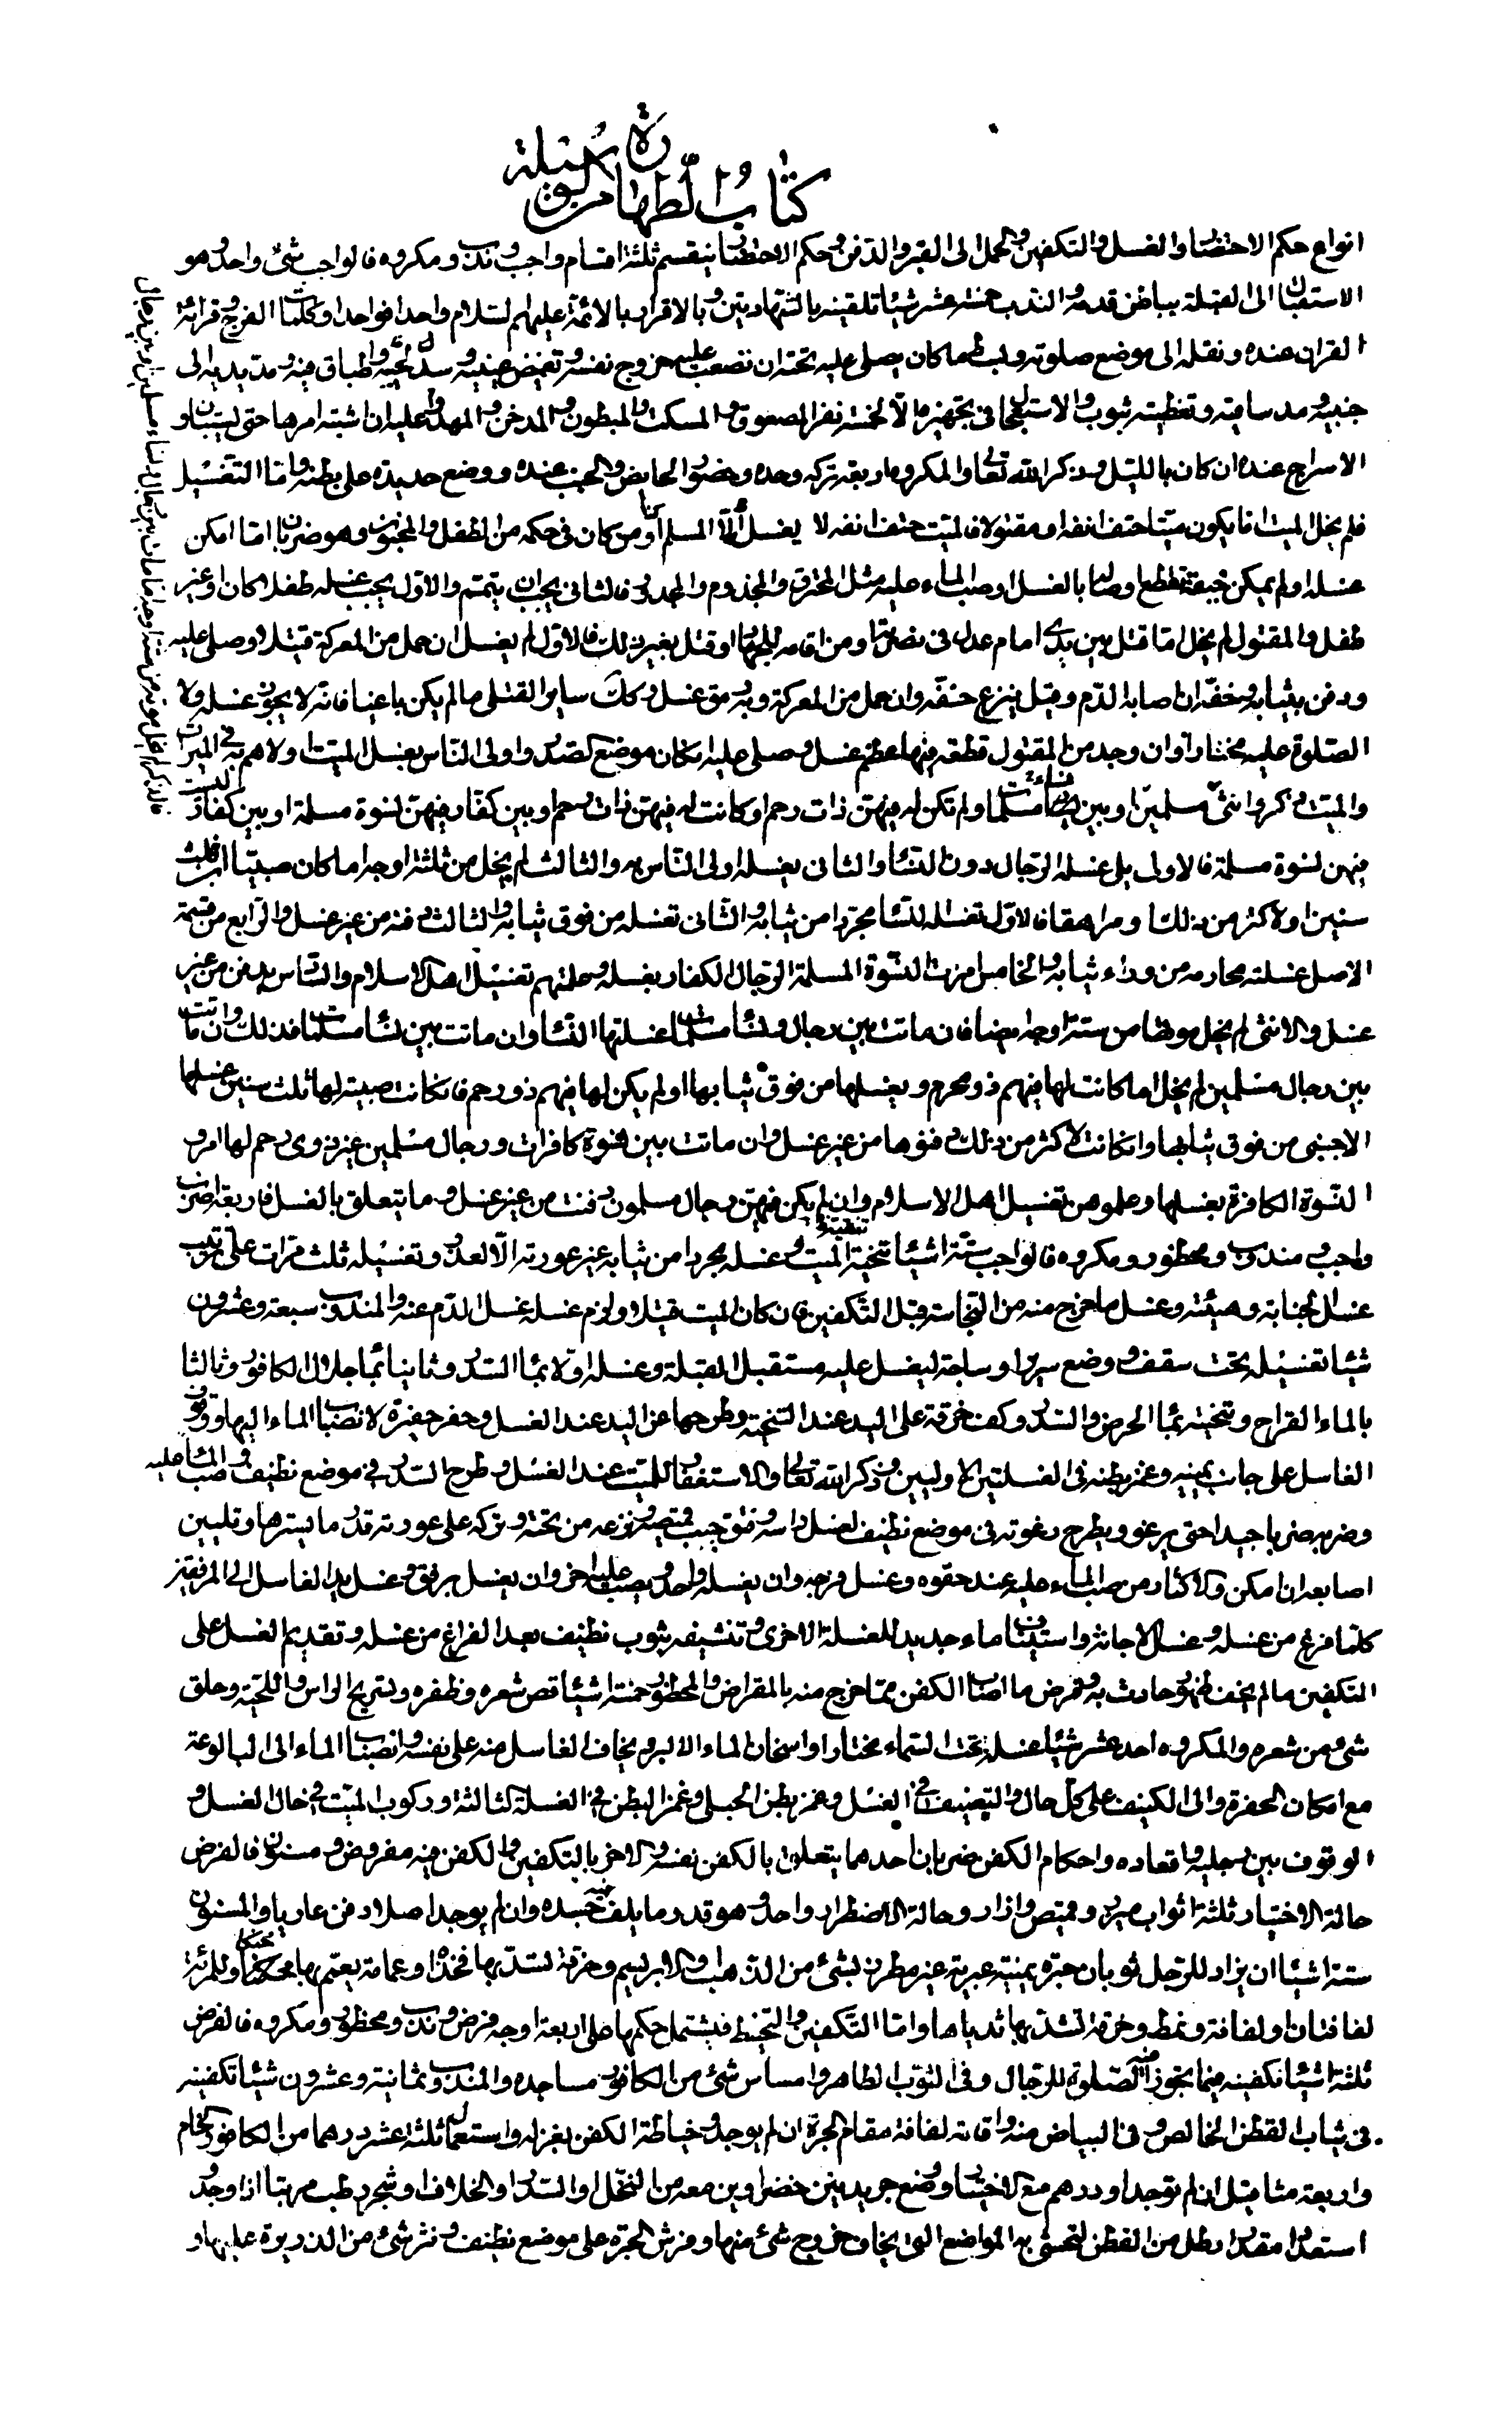 كتاب الطهارة من الوسيلة
انواع حكم الاحتضار والغسل والتكفين والحمل الى القبر والدفن وحكم الاحتضار ينقسم ثلثة اقسام واجب وندب ومكروه فالواجب شئ واحد وهو
الاستقبال الى القبلة بباطن قدميه والندب خمسة عشر شيئا تلقينه بالشهادتين وبالاقرار بالائمة عليهم السلام واحدا فواحدا وكلمات الفرج وقرائة
القران عنده ونقله الى موضع صلوته وبسط ما كان يصلى عليه تحته ان تصعب عليه خروج نفسه وتغميض عينيه وشد لحييه واطباق فيه ومد يديه الى
جنبيه ومد ساقيه وتغطيته بثوب والاستعجال فى تجهيزه الا لخمسة نفر المصعوق والمسكت والمبطون والمدخن والمهدوم عليه ان اشتبه امرها حتى يستبان و
الاسراج عنده ان كان بالليل وذكر الله تعالى والمكروه اربعة تركه وحده وحضور الحايض والجنب عنده ووضع حديدة على بطنه واما التغسيل
فلم يخل الميت اما يكون ميتا حتف انفه او مقتولا فالميت حتف انفه لا يغسل الا المسلم او من كان فى حكمه من الطفل والمجنون وهو ضربان اما امكن
غسله او لم يمكن خيفة تقطع اوصاله بالغسل او صب الماء عليه مثل المحترق والمجذوم والمجدور فالثانى يجب ان يتيمم والاول يجب غسله طفلا كان او غير
طفل والمقتول لم يخل اما قتل بين يدى امام عدل فى نصرته او من اقامه للجهاد او قتل بغير ذلك فالاول لم يغسل ان حمل من المعركة قتيلا وصلى عليه
ودفن بثيابه وخفه ان اصابه الدم وقيل ينزع خفه وان حمل من المعركة وبه رمق غسل وكك ساير القتلى ما لم يكن باغيا فانه لا يجوز غسله ولا
الصلوة عليه مختارا وان وجد من المقتول قطعة فيها عظم غسل وصلى عليه ان كان موضع الصدر واولى الناس بغسل الميت اولاهم به فى الميراث
والميت ذكر وانثى مسلمين او بين نساء مسلمات ولم تكن له فيهن ذات رحم او كانت له فيهن ذات رحم او بين كفار فيهن نسوة مسلمة او بين كفار ليست
فيهن نسوة مسلمة فالاول يلى غسله الرجال دون النساء والثانى يغسله اولى الناس به والثالث لم يخل من ثلثة اوجه اما كان صبيا ابن ثلث
سنين او لاكثر من ذلك او مراهقا فالاول تغسله النساء مجردا من ثيابه والثانى تغسله من فوق ثيابه والثالث دفنه من غير غسل والرابع من قسمة
الاصل غسلته محارمه من وراء ثيابه والخامس امرت النسوة المسلمة الرجال الكفار بغسله وعلمتهم تغسيل اهل الاسلام والسادس يدفن من غير
غسل والانثى لم يخل موتها من ستة اوجه ايضا فان ماتت بين رجال ونساء مسلمات غسلتها النساء وان ماتت بين نساء مسلمات فكذلك وان ماتت
بين رجال مسلمين لم يخل اما كانت لها فيهم ذو محرم ويغسلها من فوق ثيابها او لم يكن لها فيهم ذو رحم فان كانت صبية لها ثلث سنين غسلها
الاجنبى من فوق ثيابها وان كانت لاكثر من ذلك دفنوها من غير غسل وان ماتت بين نسوة كافرات ورجال مسلمين غير ذوى رحم لها امروا
النسوة الكافرة بغسلها وعلموهن تغسيل اهل الاسلام وان لم يكن فيهن رجال مسلمون دفنت من غير غسل وما يتعلق بالغسل فاربعة اضرب
واجب ومندوب ومحظور ومكروه فالواجب ستة اشياء تنجية الميت وغسله مجردا من ثيابه غير عورته الا لعذر وتغسيله ثلث مرات على ترتيب
غسل الجنابة وهيئته وغسل ما خرج منه من النجاسة قبل التكفين فان كان الميت قتيلا ولزم غسله غسل الدم عنه والمندوب سبعة وعشرون
شيئا تغسيله تحت سقف ووضع سرير او ساجة ليغسل عليه مستقبل القبلة وغسله اولا بماء السدر وثانيا بماء جلال الكافور وثالثا
بالماء القراح وتنجيته بماء الحرض والسدر وكف خرقة على اليد عند التنجية وطرحها عن اليد عند الغسل وحفر حفيرة لانصباب الماء اليها ووقوف
الغاسل على جانب يمينه وغمز بطنه فى الغسلتين الاوليين وذكر الله تعالى والاستغفار للميت عند الغسل وطرح السدر فى موضع نظيف وصب الماء عليه
وضربه ضربا جيدا حتى يرغو ويطرح رغوته فى موضع نظيف لغسل راسه وفتق جيب قميصه ونزعه من تحته وتركه على عورته قدر ما يسترها وتليين
اصابعه ان امكن والاكثار من صب الماء عليه عند حقوه وغسل فرجه وان يغسله واحد ويصب عليه اخر وان يغسل برفق وغسل يد الغاسل الى المرفقين
كلما فرغ من غسله وغسل الاجانة واستيناف ماء جديد للغسلة الاخرى وتنشيفه بثوب نظيف بعد الفراغ من غسله وتقديم الغسل على
التكفين ما لم يخف ظهور حادث به وقرض ما اصاب الكفن مما خرج منه بالمقراض والمحظور خمسة اشياء قص شعره وظفره وتسريح الراس واللحية وحلق
شئ من شعره والمكروه احد عشر شيئا غسله تحت السماء مختارا واسخان الماء الا لبرد يخاف الغاسل منه على نفسه وانصباب الماء الى البالوعة
مع امكان الحفرة والى الكنيف على كل حال والتعنيف فى الغسل وغمز بطن الحبلى وغمز البطن فى الغسلة الثالثة وركوب الميت فى حال الغسل و
الوقوف بين رجليه واقعاده واحكام الكفن ضربان احدهما يتعلق بالكفن نفسه والاخر بالتكفين والكفن فيه مفروض ومسنون فالفرض
حالة الاختيار ثلثة اثواب ميزر وقميص وازار وحالة الاضطرار واحد وهو قدر ما يلف فيه جسده وان لم يوجد اصلا دفن عاريا والمسنون
ستة اشياء ان يزاد للرجل ثوبان حبرة يمنية عبرية غير مطرز بشئ من الذهب والابريسم وخرقة تشد بها فخذاه وعمامة يعتم بها محنكا وللمرئة
لفافتان او لفافة ونمط وخرقة تشد بها ثدياها واما التكفين والتحنيط فيشتمل حكمها على اربعة اوجه فرض وندب ومحظور ومكروه فالفرض
ثلثة اشياء تكفينه فيما يجوز فيه الصلوة للرجال وفى الثوب الطاهر وامساس شئ من الكافور مساجده والمندوب ثمانية وعشرون شيئا تكفينه
فى ثياب القطن الخالص وفى البياض منه واقامة لفافة مقام الحبرة ان لم يوجد وخياطة الكفن بغزله واستعمال ثلثة عشر درهما من الكافور الخام
واربعة مثاقيل ان لم توجد او درهم مع الاختيار ووضع جريدتين خضراوين معه من النخل او السدر او الخلاف او شجر رطب مرتبا اذا وجد و
استعداد مقدار رطل من القطن لتحشى به المواضع التى يخاف خروج شئ منها وفرش الحبرة على موضع نظيف ونثر شئ من الذريرة عليها و